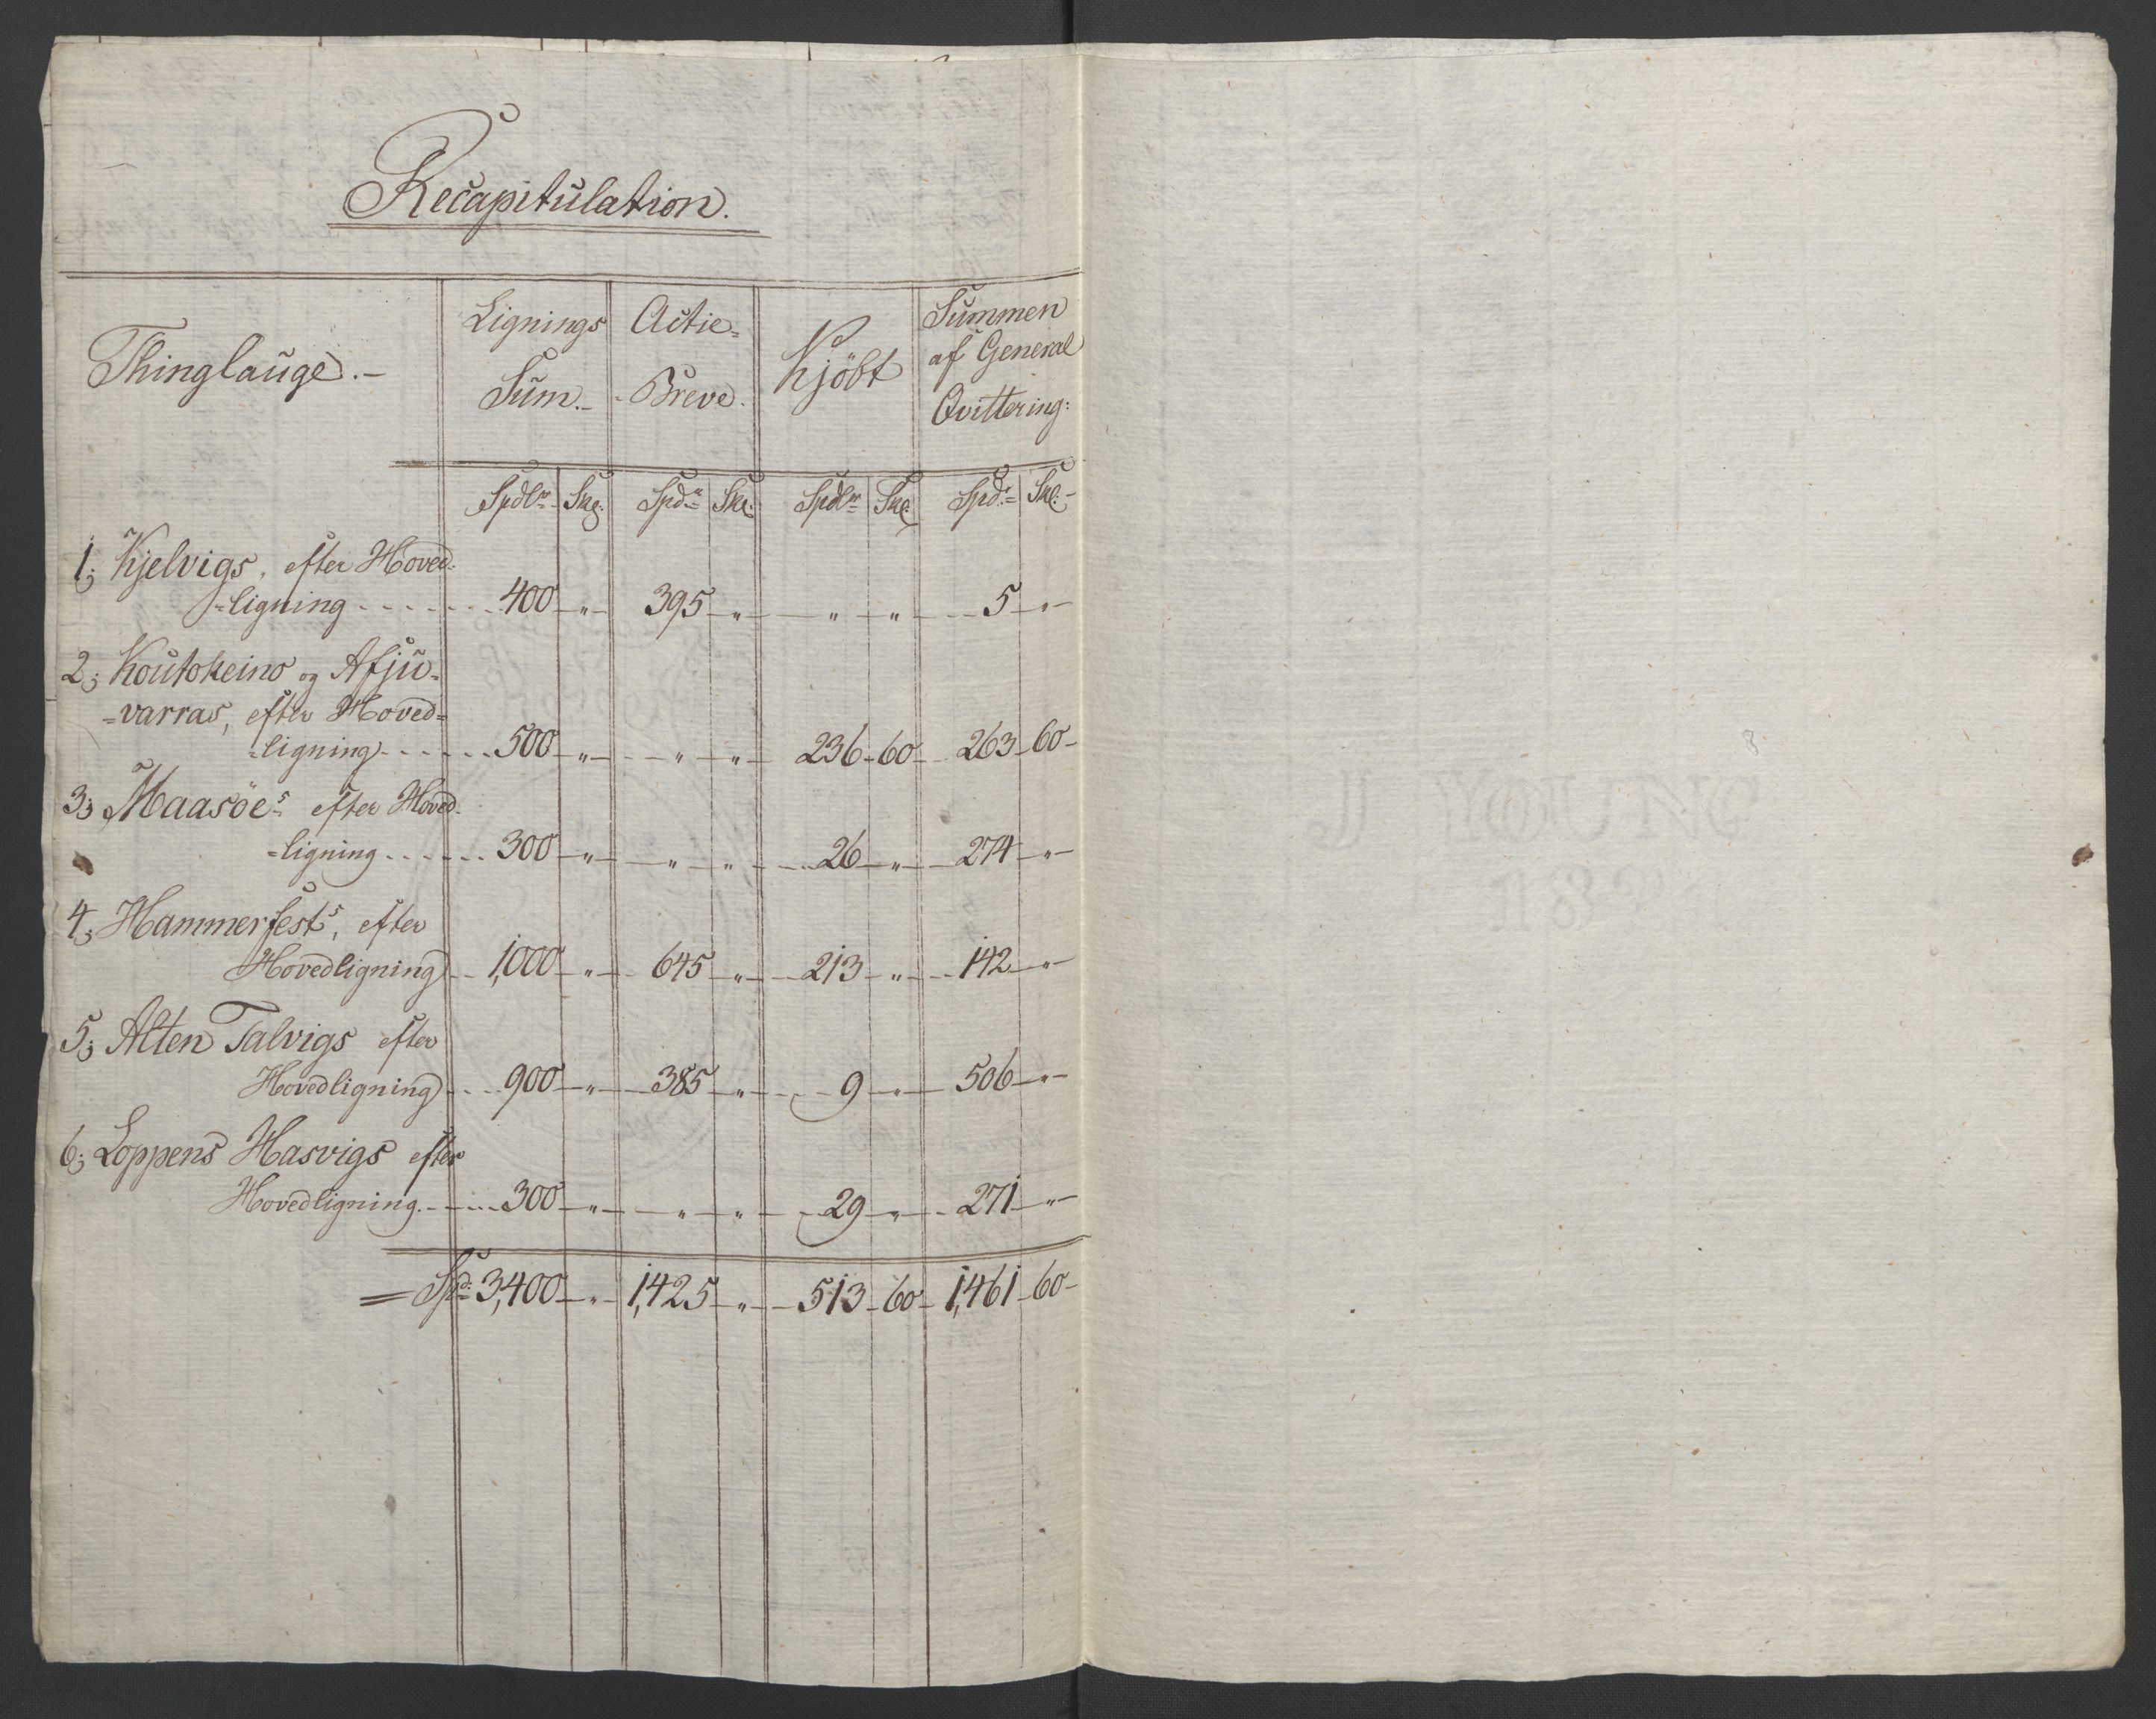 Recapitulation.
Thinglauge.- Lignings Sum.- Actie= Breve. Kjöbt Summen af General Qvittering:
Spdlr Skg: Spdr Skl: Spdlr Skl: Spdr Skl:-
1; Kjelvigs, efter Hoved-
=ligning - - - - - - 400 - " - 395 - " - - " - " - - 5 - " -
2; Koutokeino og Afju=
=varras, efter Hoved=
=ligning - - - - - 500 - " - - " - " - 236 - 60 - 263 - 60 -
3; Maasöes efter Hoved-
=ligning - - - - - 300 - " - - " - " - - 26 - " - 274 - " -
4; Hammerfests, efter
Hovedligning - - 1,000 - " - 645 - " - 213 - " - 142 - " -
5; Alten Talvigs efter
Hovedligning - - - 900 - " - 385 - " - - 9 - " - 506 - " -
6; Loppens Hasvigs efter
Hovedligning. - - - 300 - " - - " - " - - 29 - " - 271 - " -
= Spd: 3,400 - " - 1,425 - " - 513 - 60 - 1,461 - 60 -
J YOUNG